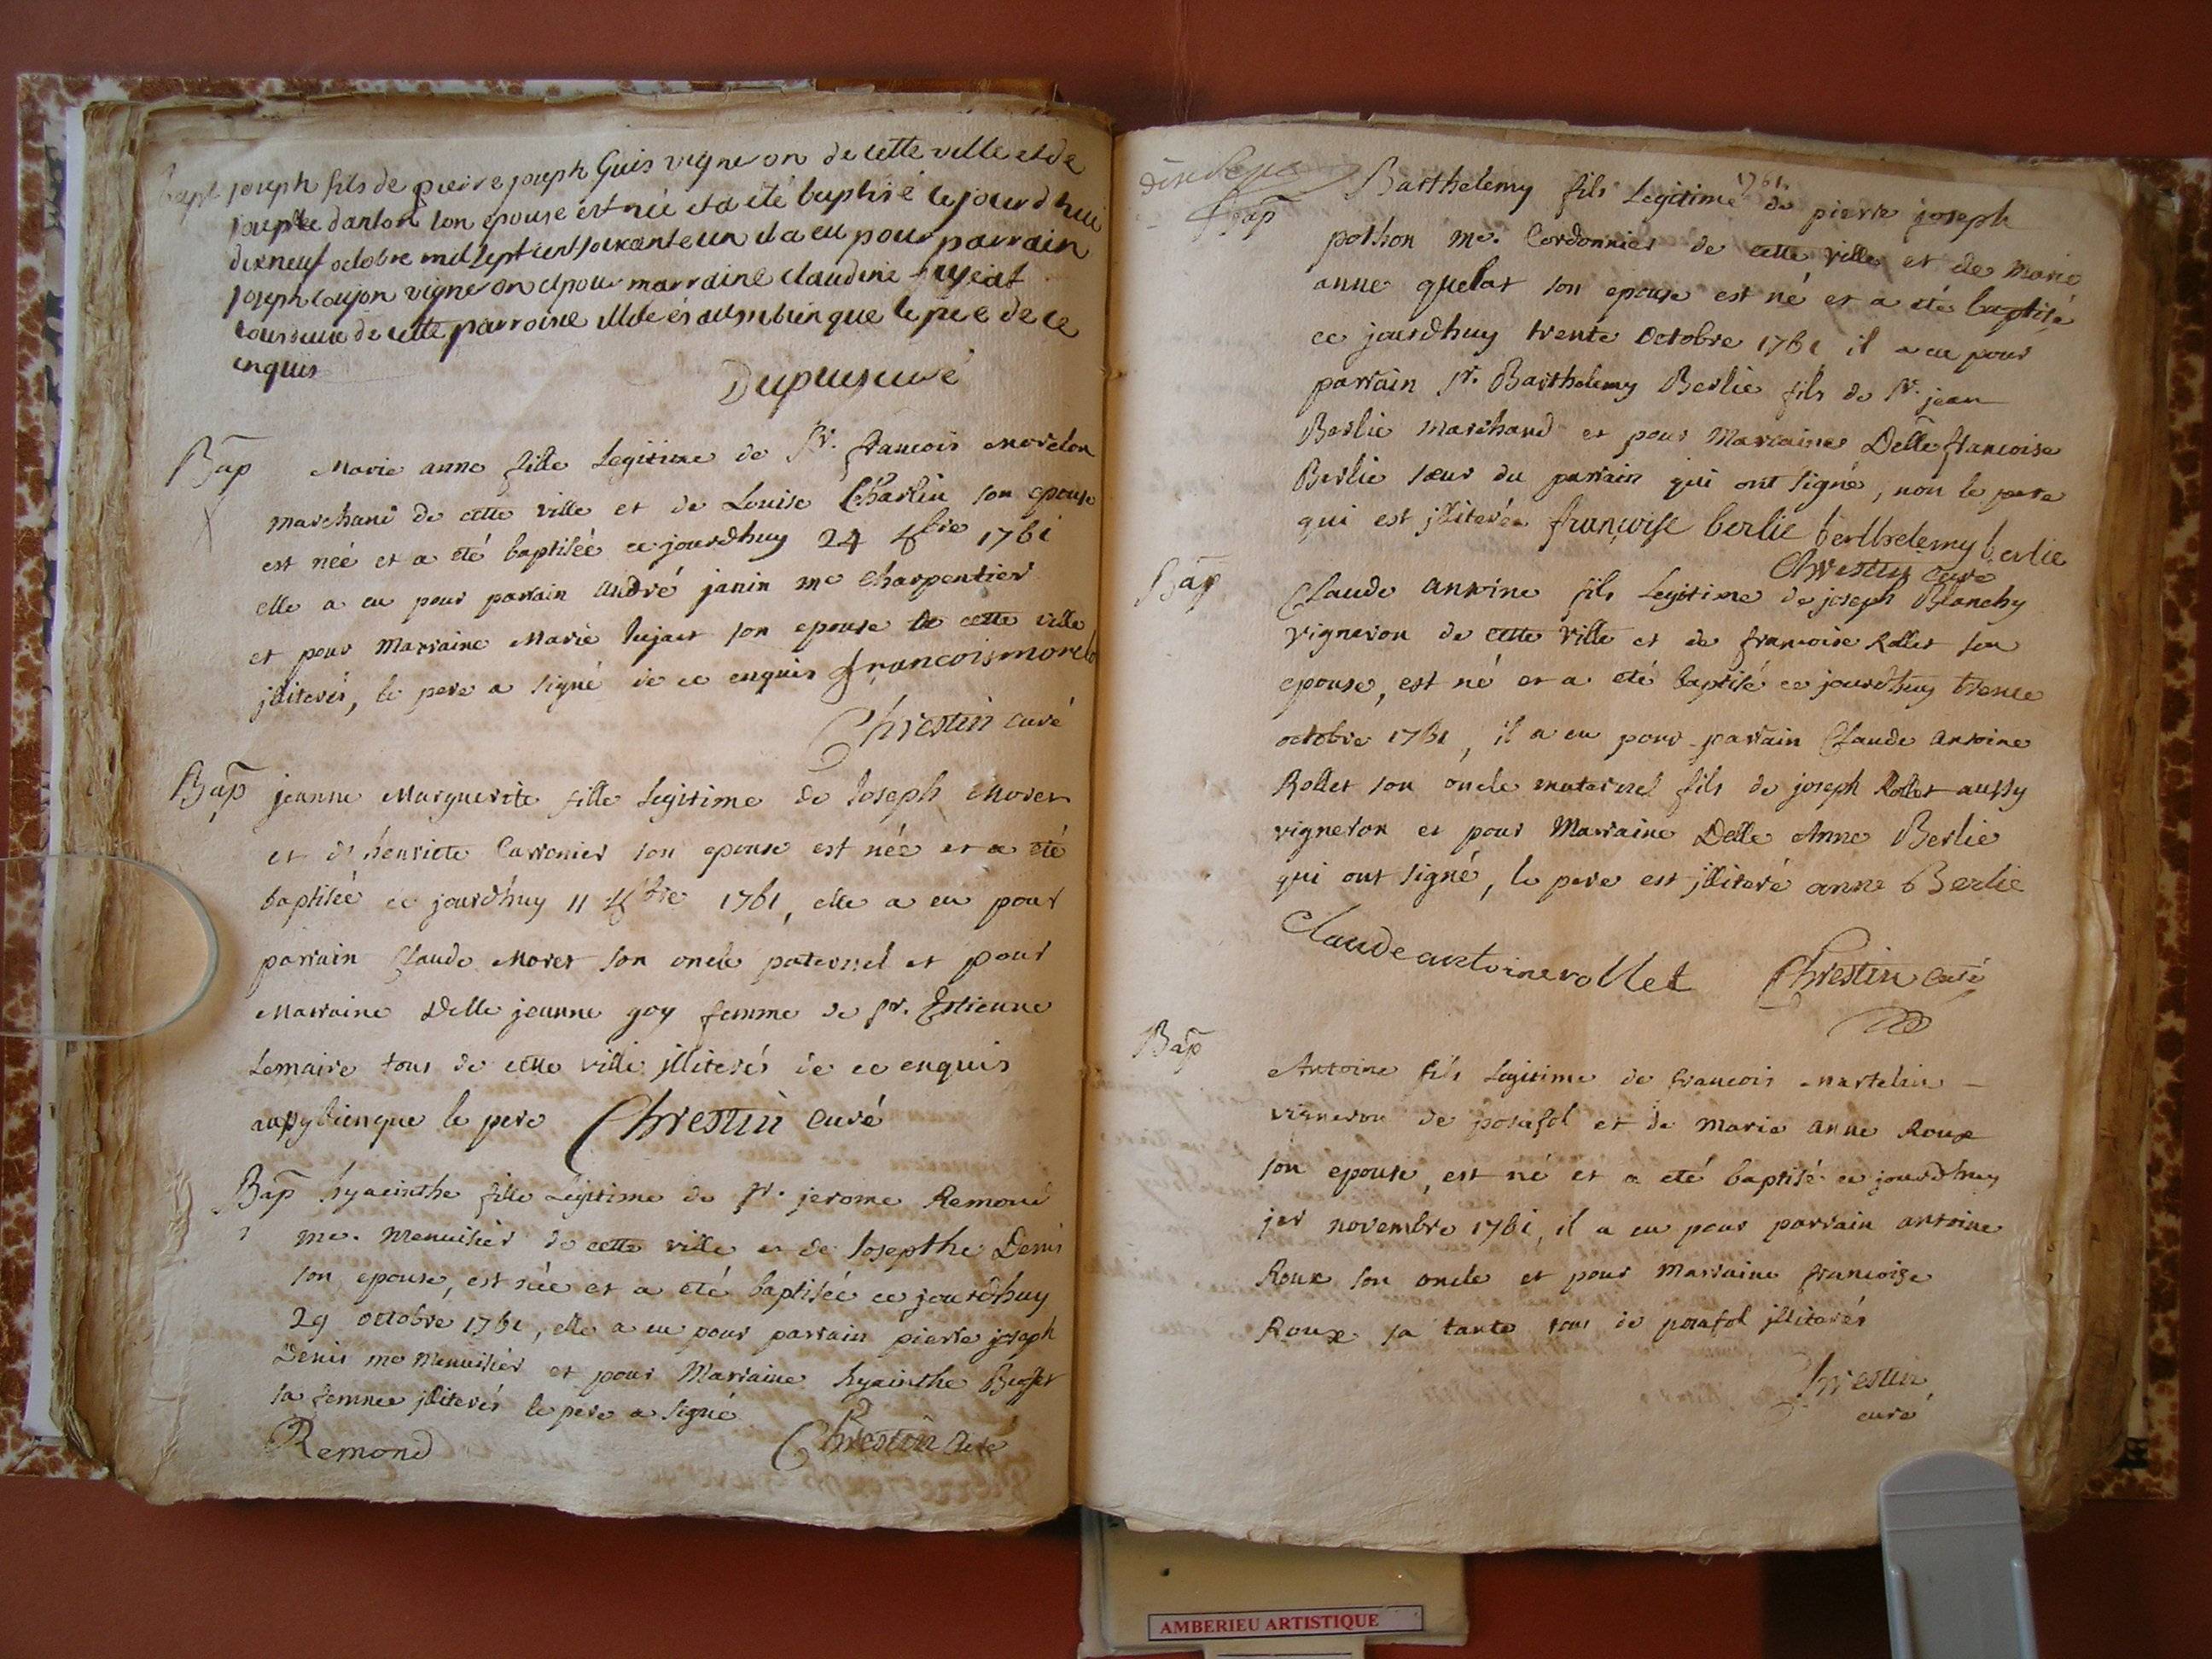 bapt joseph fils de pierre joseph Guis vigneron de cette ville et de
son epouse est née et a été baptisé cejourdhui
dixneuf octobre mil sept cent soixante un il a eu pour parrain
joseph vigneron et pour marraine claudine
de cette parroisse que le pere de ce
enquis
Bap Marie anne fille Legitime de Sr. francois morelon
marchand de cette ville et de Louise Charlin son epouse
est néé et a été baptiséé ce jourdhuy 24 8bre 1761
elle a eu pour parrain andré janin me charpentier
et pour Marraine Marie son epouse de cette ville
jlliterés, le pere a signé de ce enquis francois morelo
Chrestin curé
Bap jeanne Marguerite fille Legitime de Joseph Moret
et d'henriete Carronier son epouse est néé et a été
baptiséé ce jourdhuy 11 1761, elle a eu pour
parrain Claude Moret son oncle paternel et pour
Marraine Delle jeanne goy femme de Sr. Estienne
Lemaire tous de cette ville jlliterés de ce enquis
aussy bien que le pere Chrestin curé
Bap hyacinthe fille Legitime de Sr. jerome Remond
me. Menuisier de cette ville et de Josepthe Denis
son epouse, est néé et a été baptiséé ce jourdhuy
29 octobre 1761, elle a eu pour parrain pierre joseph
Denis me Menuisier et pour Marraine hyainthe
sa femme jlliterés le pere a signé
Remond Chrestin curé
1761.
Bap Barthelemy fils Legitime de pierre joseph
pothon me. Cordonnier de cette ville et de Marie
anne quelat son epouse est né et a été baptisé
ce jourdhuy trente Octobre 1761 il a eu pour
parrain Sr. Barthelemy Berlie fils de Sr. jean
Berlie marchand et pour Marraine Delle francoise
Berlie sœur du parrain qui ont signé, non le pere
qui est jlliteré françoise berlie berthelemy berlie
Chrestin curé
Bap Claude antoine fils Legitime de joseph Blanchy
vigneron de cette ville et de francoise Rollet son
epouse, est né et a été baptisé ce jourdhuy trente
octobre 1761, il a eu pour parrain Claude antoine
Rollet son oncle maternel fils de joseph Rollet aussy
vigneron et pour Marraine Delle Anne Berlie
qui ont signé, le pere est jlliteré anne Berlie
Claude antoine rollet Chrestin curé
Bap Antoine fils Legitime de francois martelin
vigneron de posafol et de Marie anne Roux
son epouse, est né et a été baptisé ce jourdhuy
jer novembre 1761, il a eu pour parrain antoine
Roux son oncle et pour Marraine francoise
Roux sa tante tous de posafol jlliterés
Chrestin
curé
AMBERIEU ARTISTIQUE